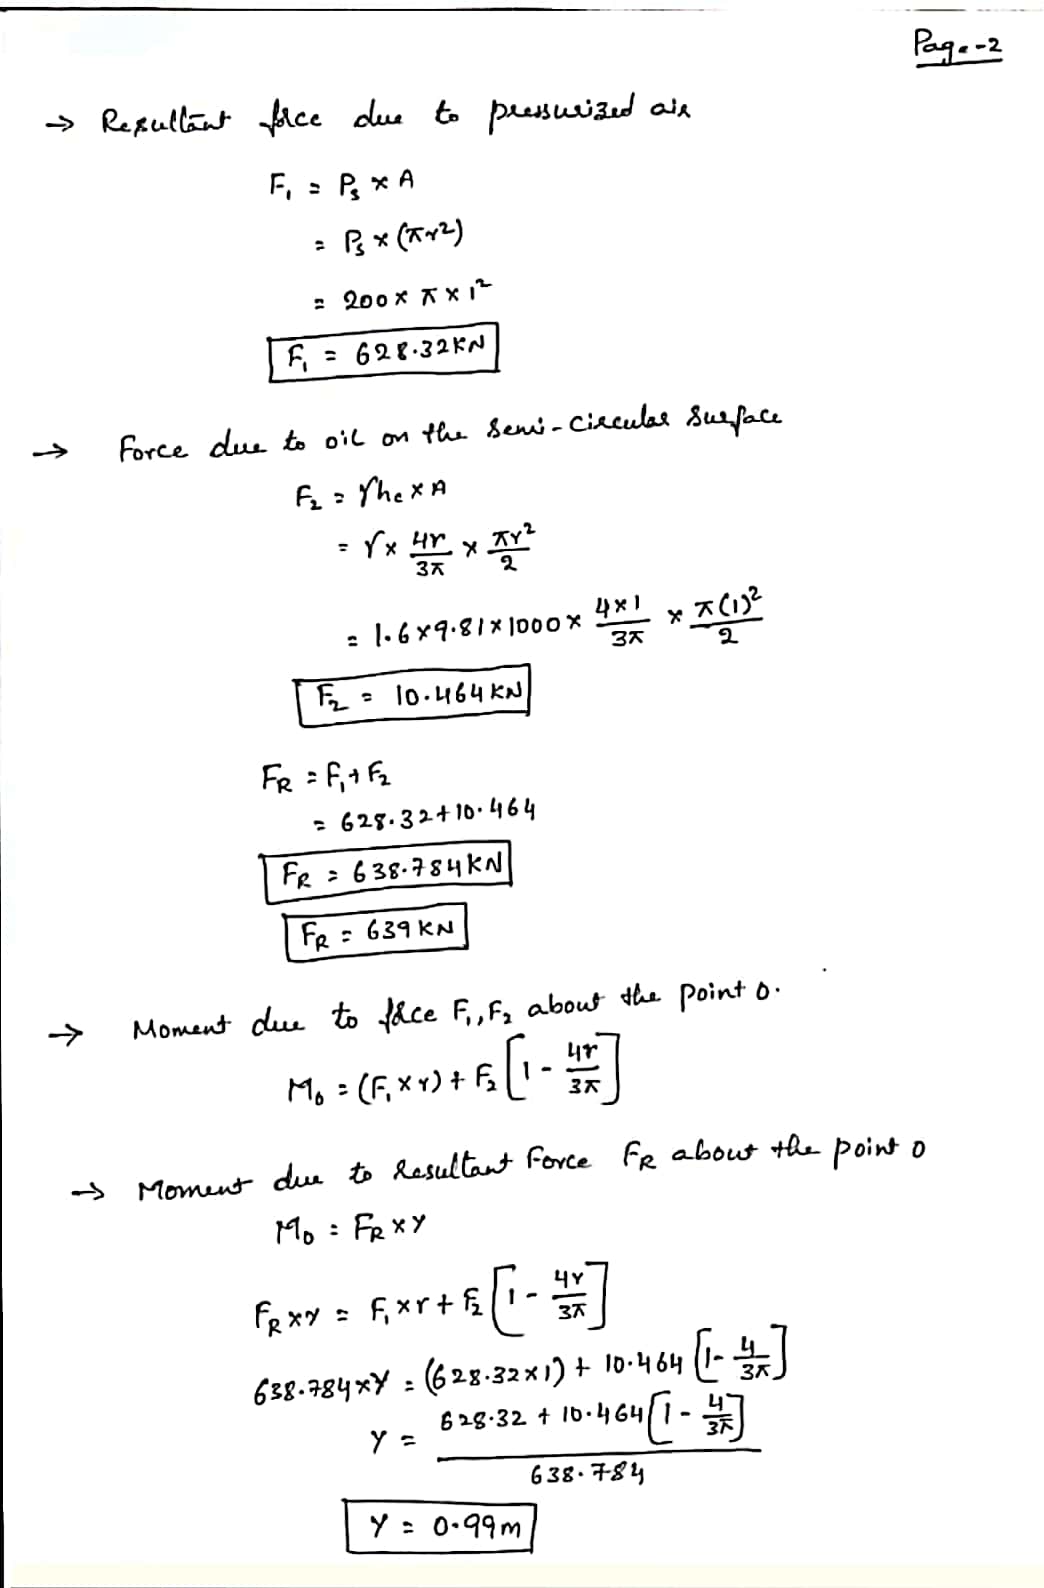 Page-2
→ Resultant force due to pressurized air
F₁ = Pₛ × A
= Pₛ × (πr²)
= 200 × π × 1²
F₁ = 628.32KN
→ Force due to oil on the Semi-Circular Surface
F₂ = γhc × A
= γ × 4r/3π × πr²/2
= 1.6×9.81×1000× 4×1/3π × π(1)²/2
F₂ = 10.464 KN
FR = F₁+F₂
= 628.32+10.464
FR = 638.784KN
FR = 639 KN
→ Moment due to force F₁, F₂ about the point o.
M₀ = (F₁×r) + F₂[1 - 4r/3π]
→ Moment due to Resultant Force FR about the point o
M₀ = FR × Y
FR×Y = F₁×r + F₂[1 - 4r/3π]
638.784×Y = (628.32×1) + 10.464[1- 4/3π]
Y = 628.32 + 10.464[1 - 4/3π] / 638.784
Y = 0.99m